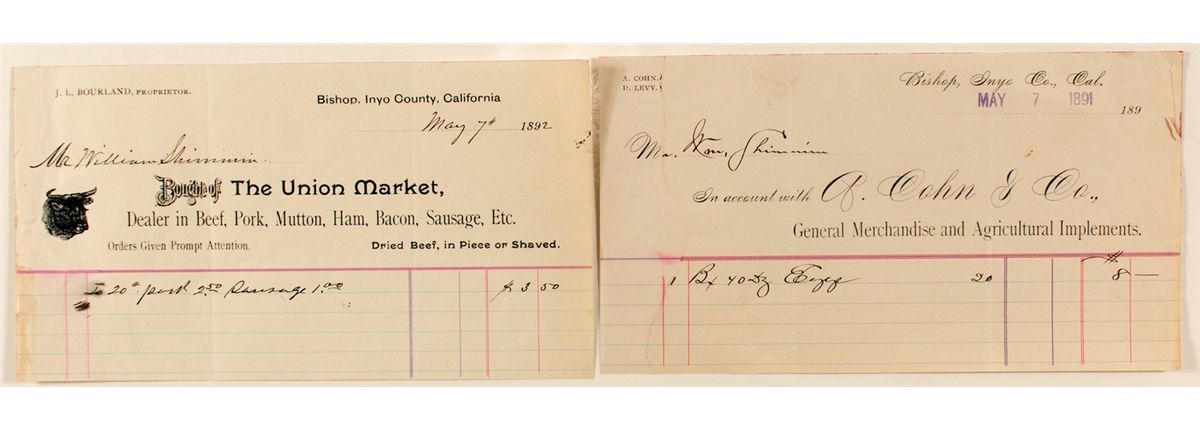 J. L. BOURLAND, PROPRIETOR.
Bishop. Inyo County, California
May 7th 1892
Mr William Shimmin
Bought of The Union Market,
Dealer in Beef, Pork, Mutton, Ham, Bacon, Sausage, Etc.
Orders Given Prompt Attention. Dried Beef, in Piece or Shaved.
To 20# pork 2.50 Sausage 1.00 $ 3 50
A. COHN.
D. LEVY.
Bishop, Inyo Co., Cal.
MAY 7 1891
189
Mr. Wm. Shimmin
In account with A. Cohn & Co.,
General Merchandise and Agricultural Implements.
$
1 Bx 40 dz Eggs 20 8 —